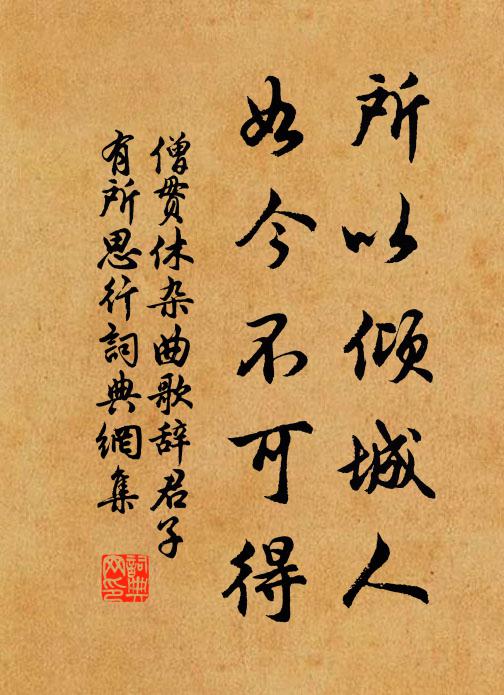 所以倾城人
如今不可得
僧贯休杂曲歌辞君子
有所思行詞典網集
詞典
网印